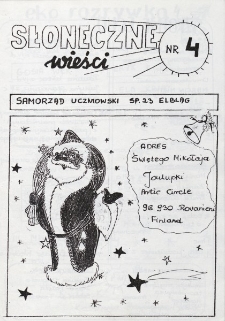 SŁONECZNE
wieści
NR 4
SAMORZĄD UCZNIOWSKI SP.23 ELBLĄG
ADRES
Świętego Mikołaja
Joulupki
Artic Circle
96 930 Rovaniemi
Finland